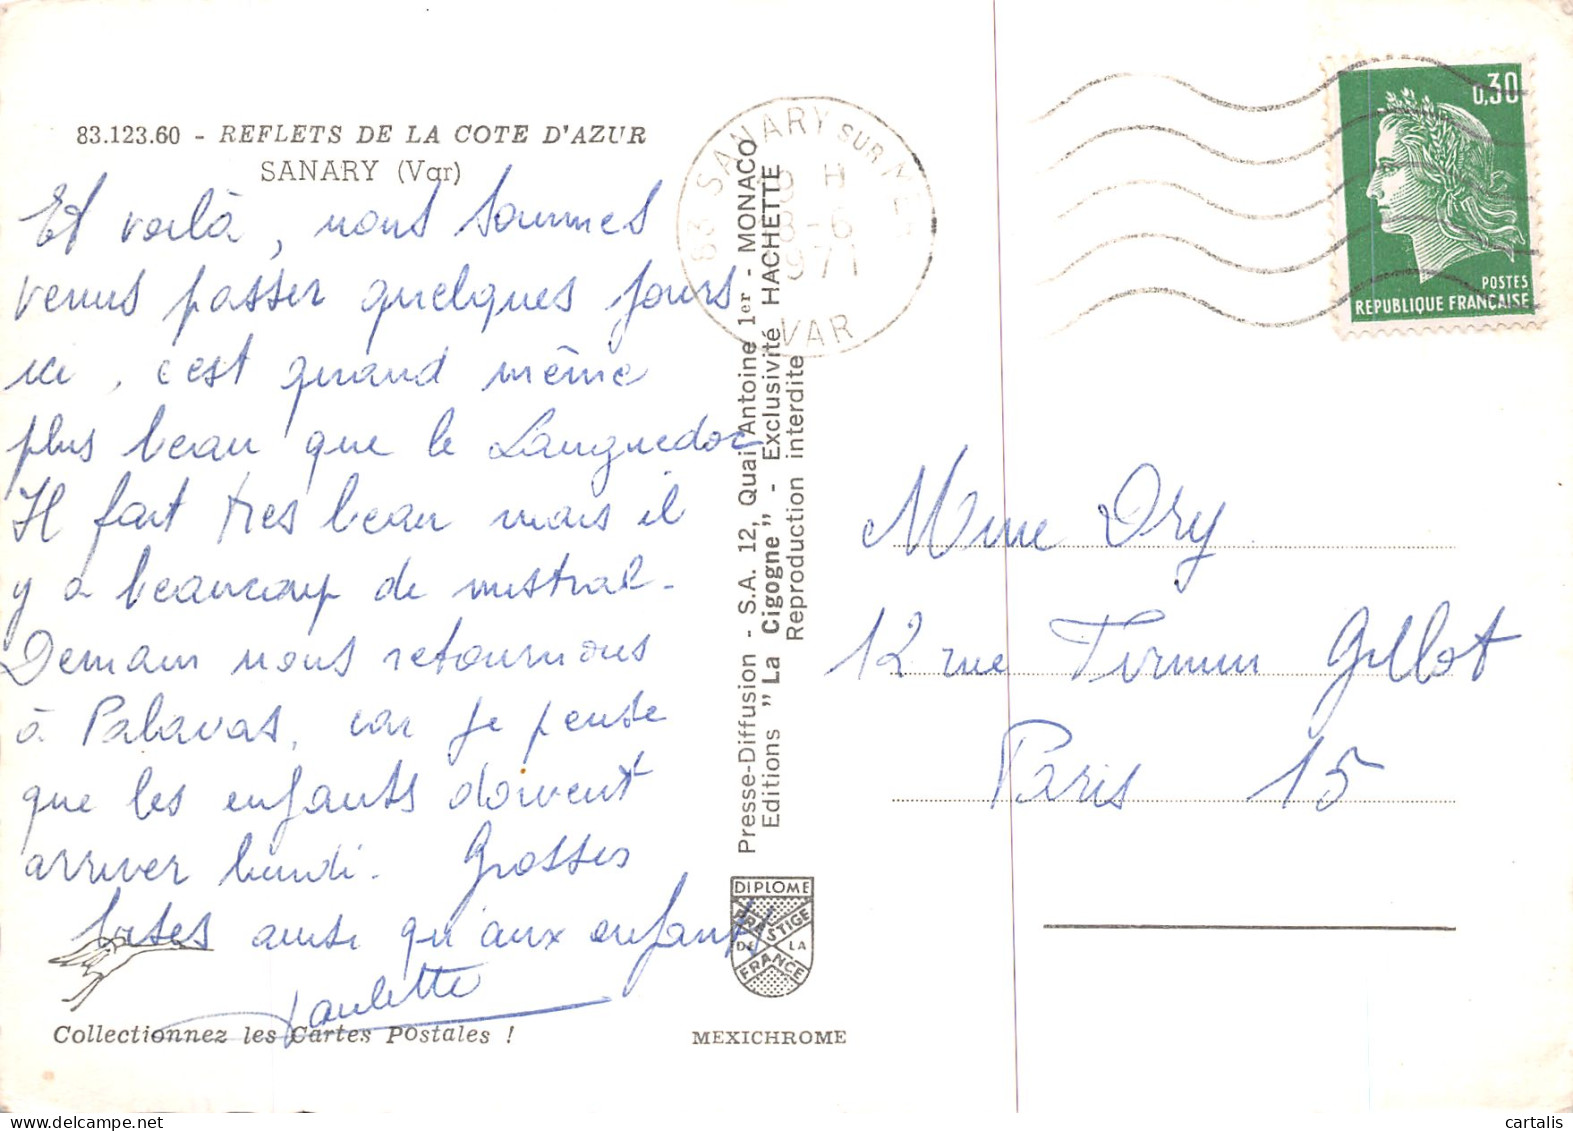 83.123.60 - REFLETS DE LA COTE D'AZUR
SANARY (Var)
Et voilà, nous sommes
venus passer quelques jours
ici, c'est quand même
plus beau que le Languedoc
Il fait très beau mais il
y a beaucoup de mistral -
Demain nous retournons
à Palavas, car je pense
que les enfants doivent
arriver lundi. Grosses
bises ainsi qu'aux enfants
Paulette
Collectionnez les Cartes Postales !
MEXICHROME
83 SANARY SUR MER
H
8-6
1971
VAR
Presse-Diffusion - S.A. 12, Quai Antoine 1er - MONACO
Editions "La Cigogne" - Exclusivité HACHETTE
Reproduction interdite
DIPLOME
PRESTIGE
DE LA
FRANCE
0,30
POSTES
REPUBLIQUE FRANÇAISE
Mme Dry
12 rue Firmin Gillot
Paris 15
cartalis